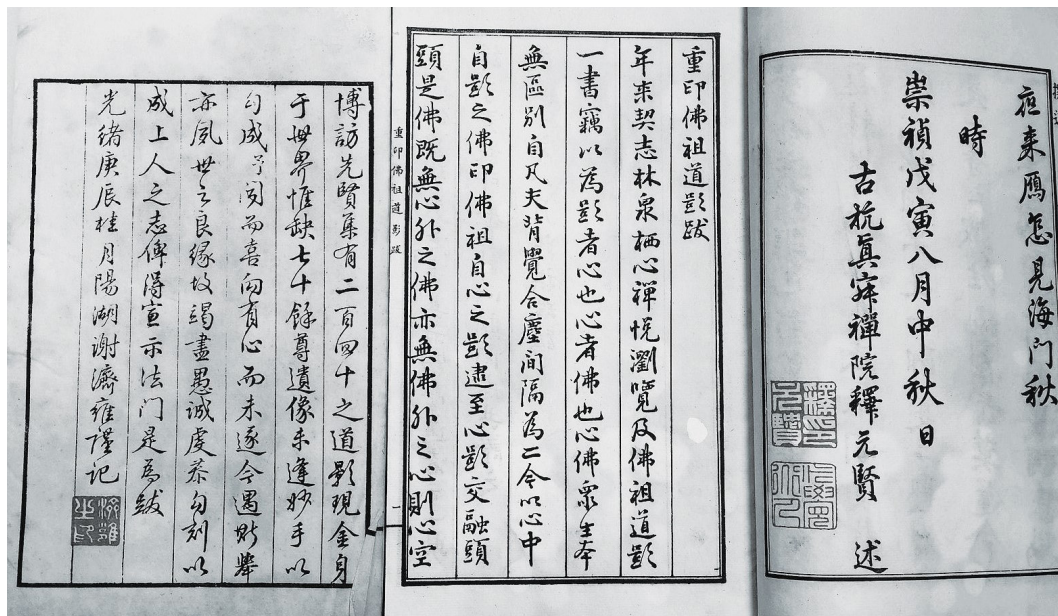 應來鴈怎見海门秋
時
崇禎戊寅八月中秋日
古杭真寂禪院釋元賢 述
重印佛祖道影跋
年来契志林泉栖心禪悦瀏覽及佛祖道影
一書竊以為影者心也心者佛也心佛衆生本
無區别自凡夫背覺合塵间隔為二今以心中
自影之佛印佛祖自心之影逮至心影交融頭
頭是佛既無心外之佛亦無佛外之心則心空
重印佛祖道影跋
一
博访先賢集有二百四十之道影現金身
于世界惟缺七十餘尊遺像未逢妙手以
勾成予闻而喜向有心而未逐今遇斯舉
亦夙世之良缘故竭盡愚诚虔恭勾刻以
成上人之志俾得宣示法门是為跋
光绪庚辰桂月陽湖谢濟雍謹记